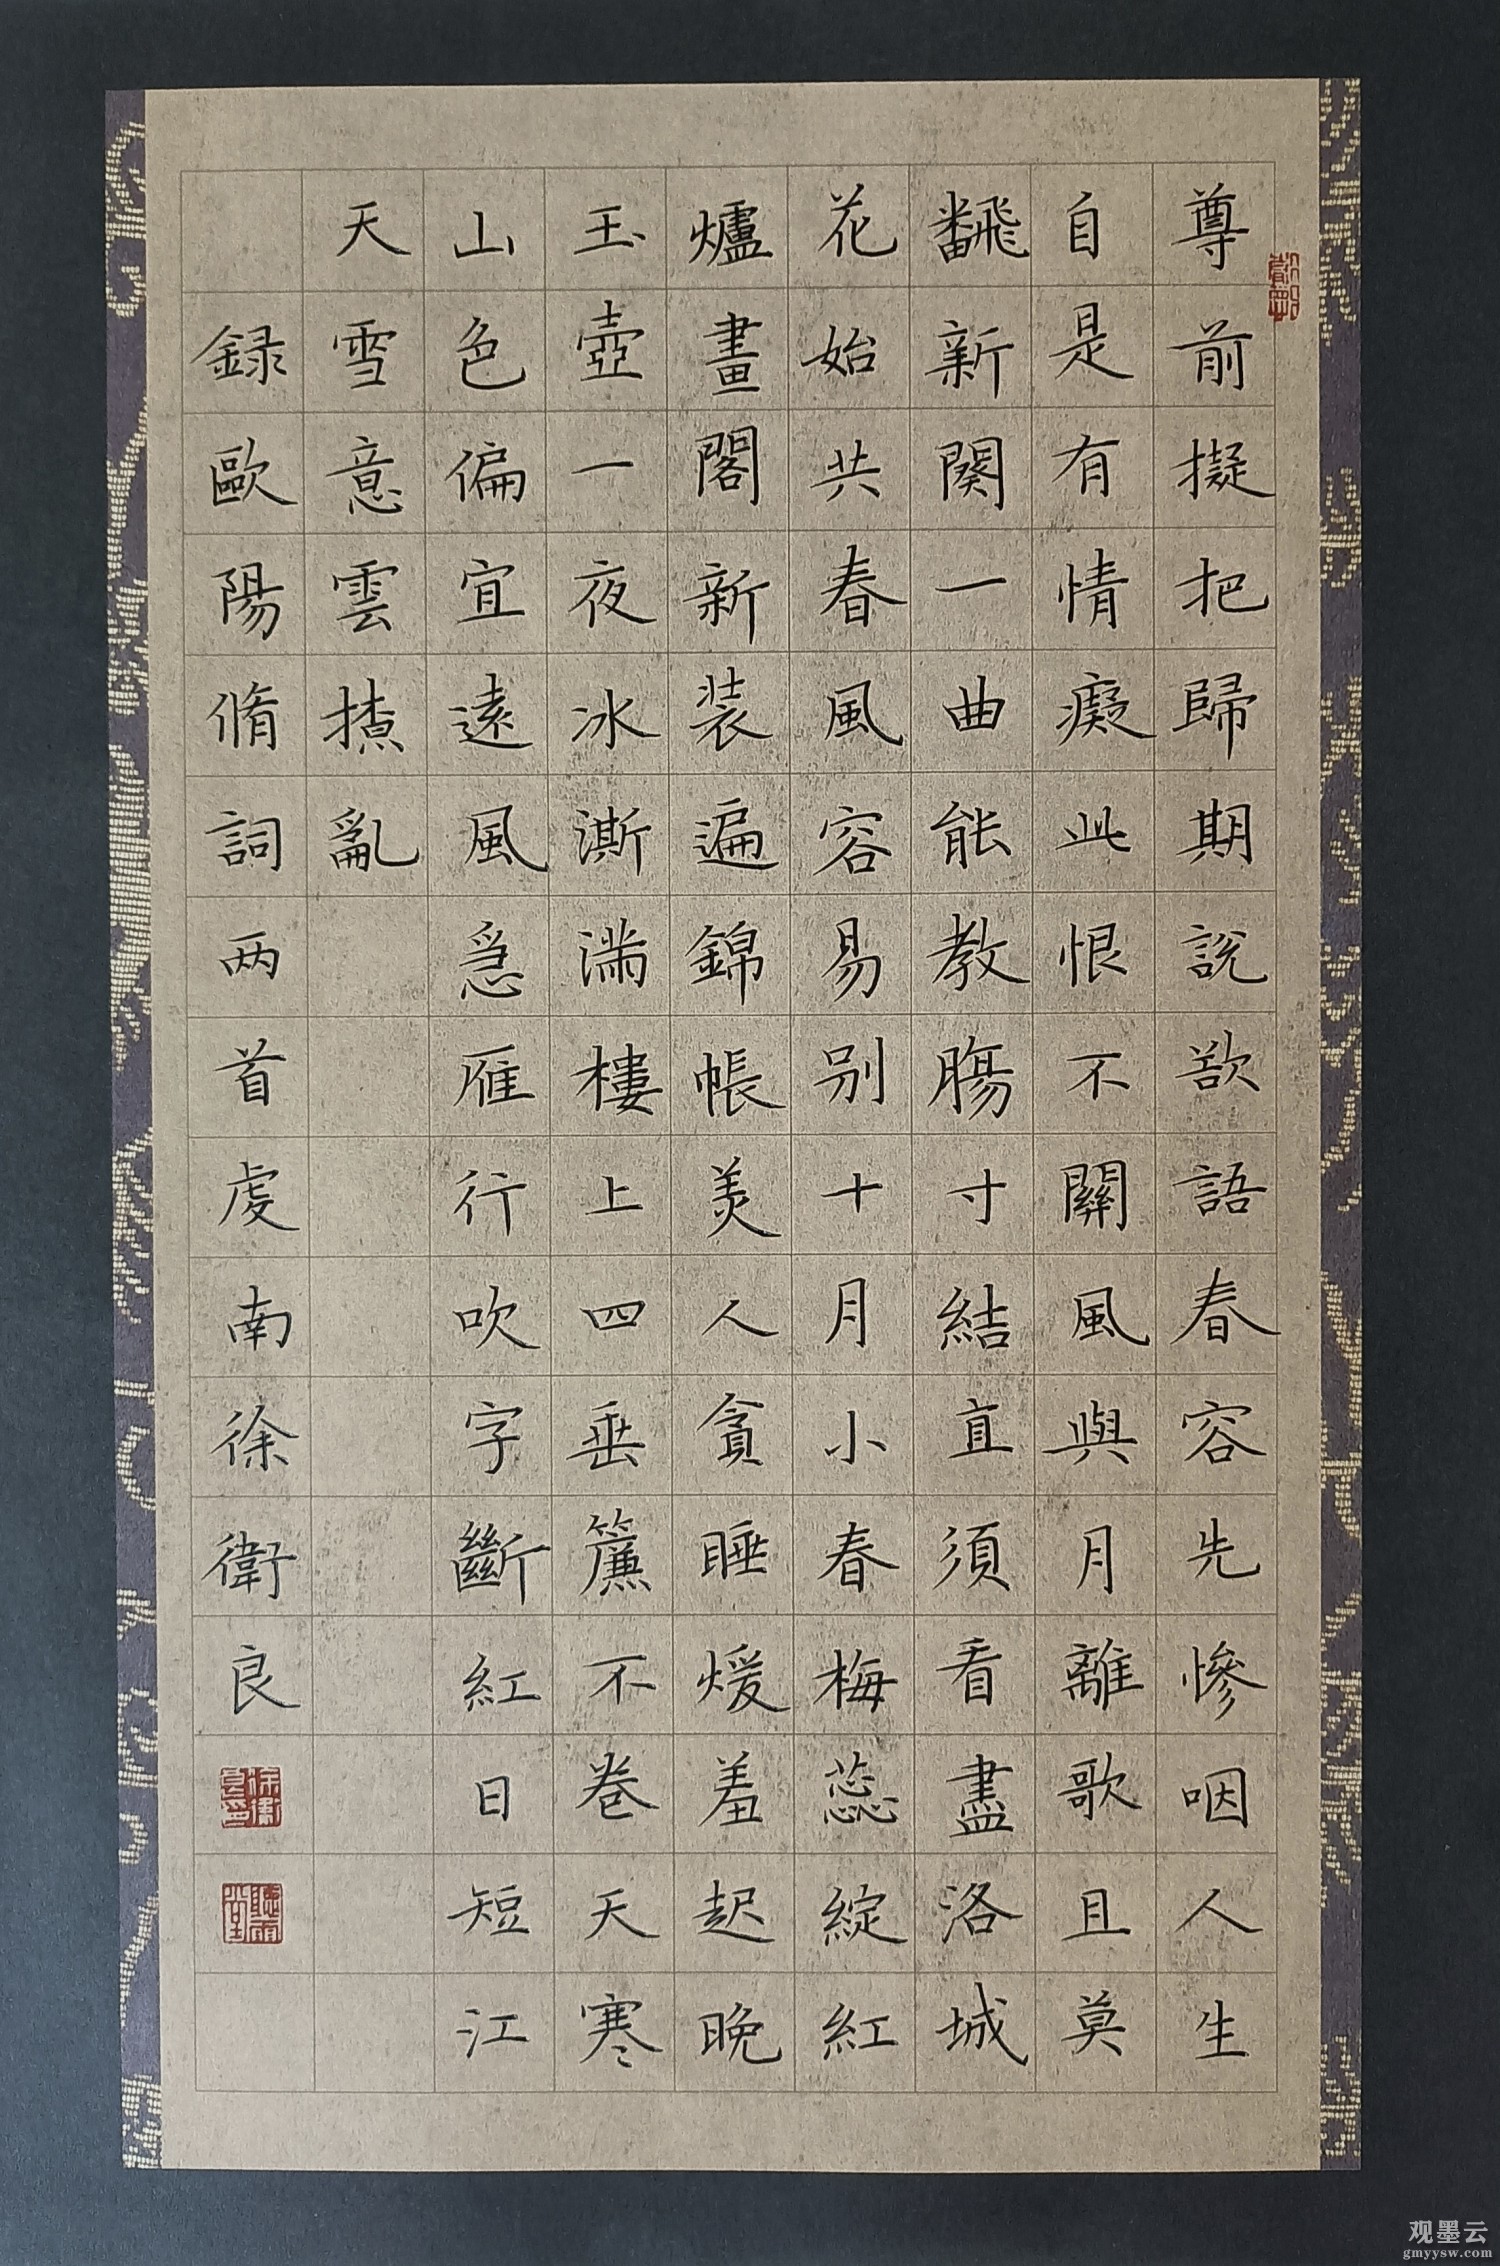 尊前擬把歸期說欲語春容先慘咽人生
自是有情癡此恨不關風與月離歌且莫
飜新闋一曲能教腸寸結直須看盡洛城
花始共春風容易別十月小春梅蕊綻紅
爐畫閣新装遍錦帳美人貪睡煖羞起晚
玉壺一夜冰澌滿樓上四垂簾不卷天寒
山色偏宜遠風急雁行吹字斷紅日短江
天雪意雲撩亂
録歐陽脩詞两首處南徐衛良
徐衛良印
聽雨堂
观墨云
gmyysw.com